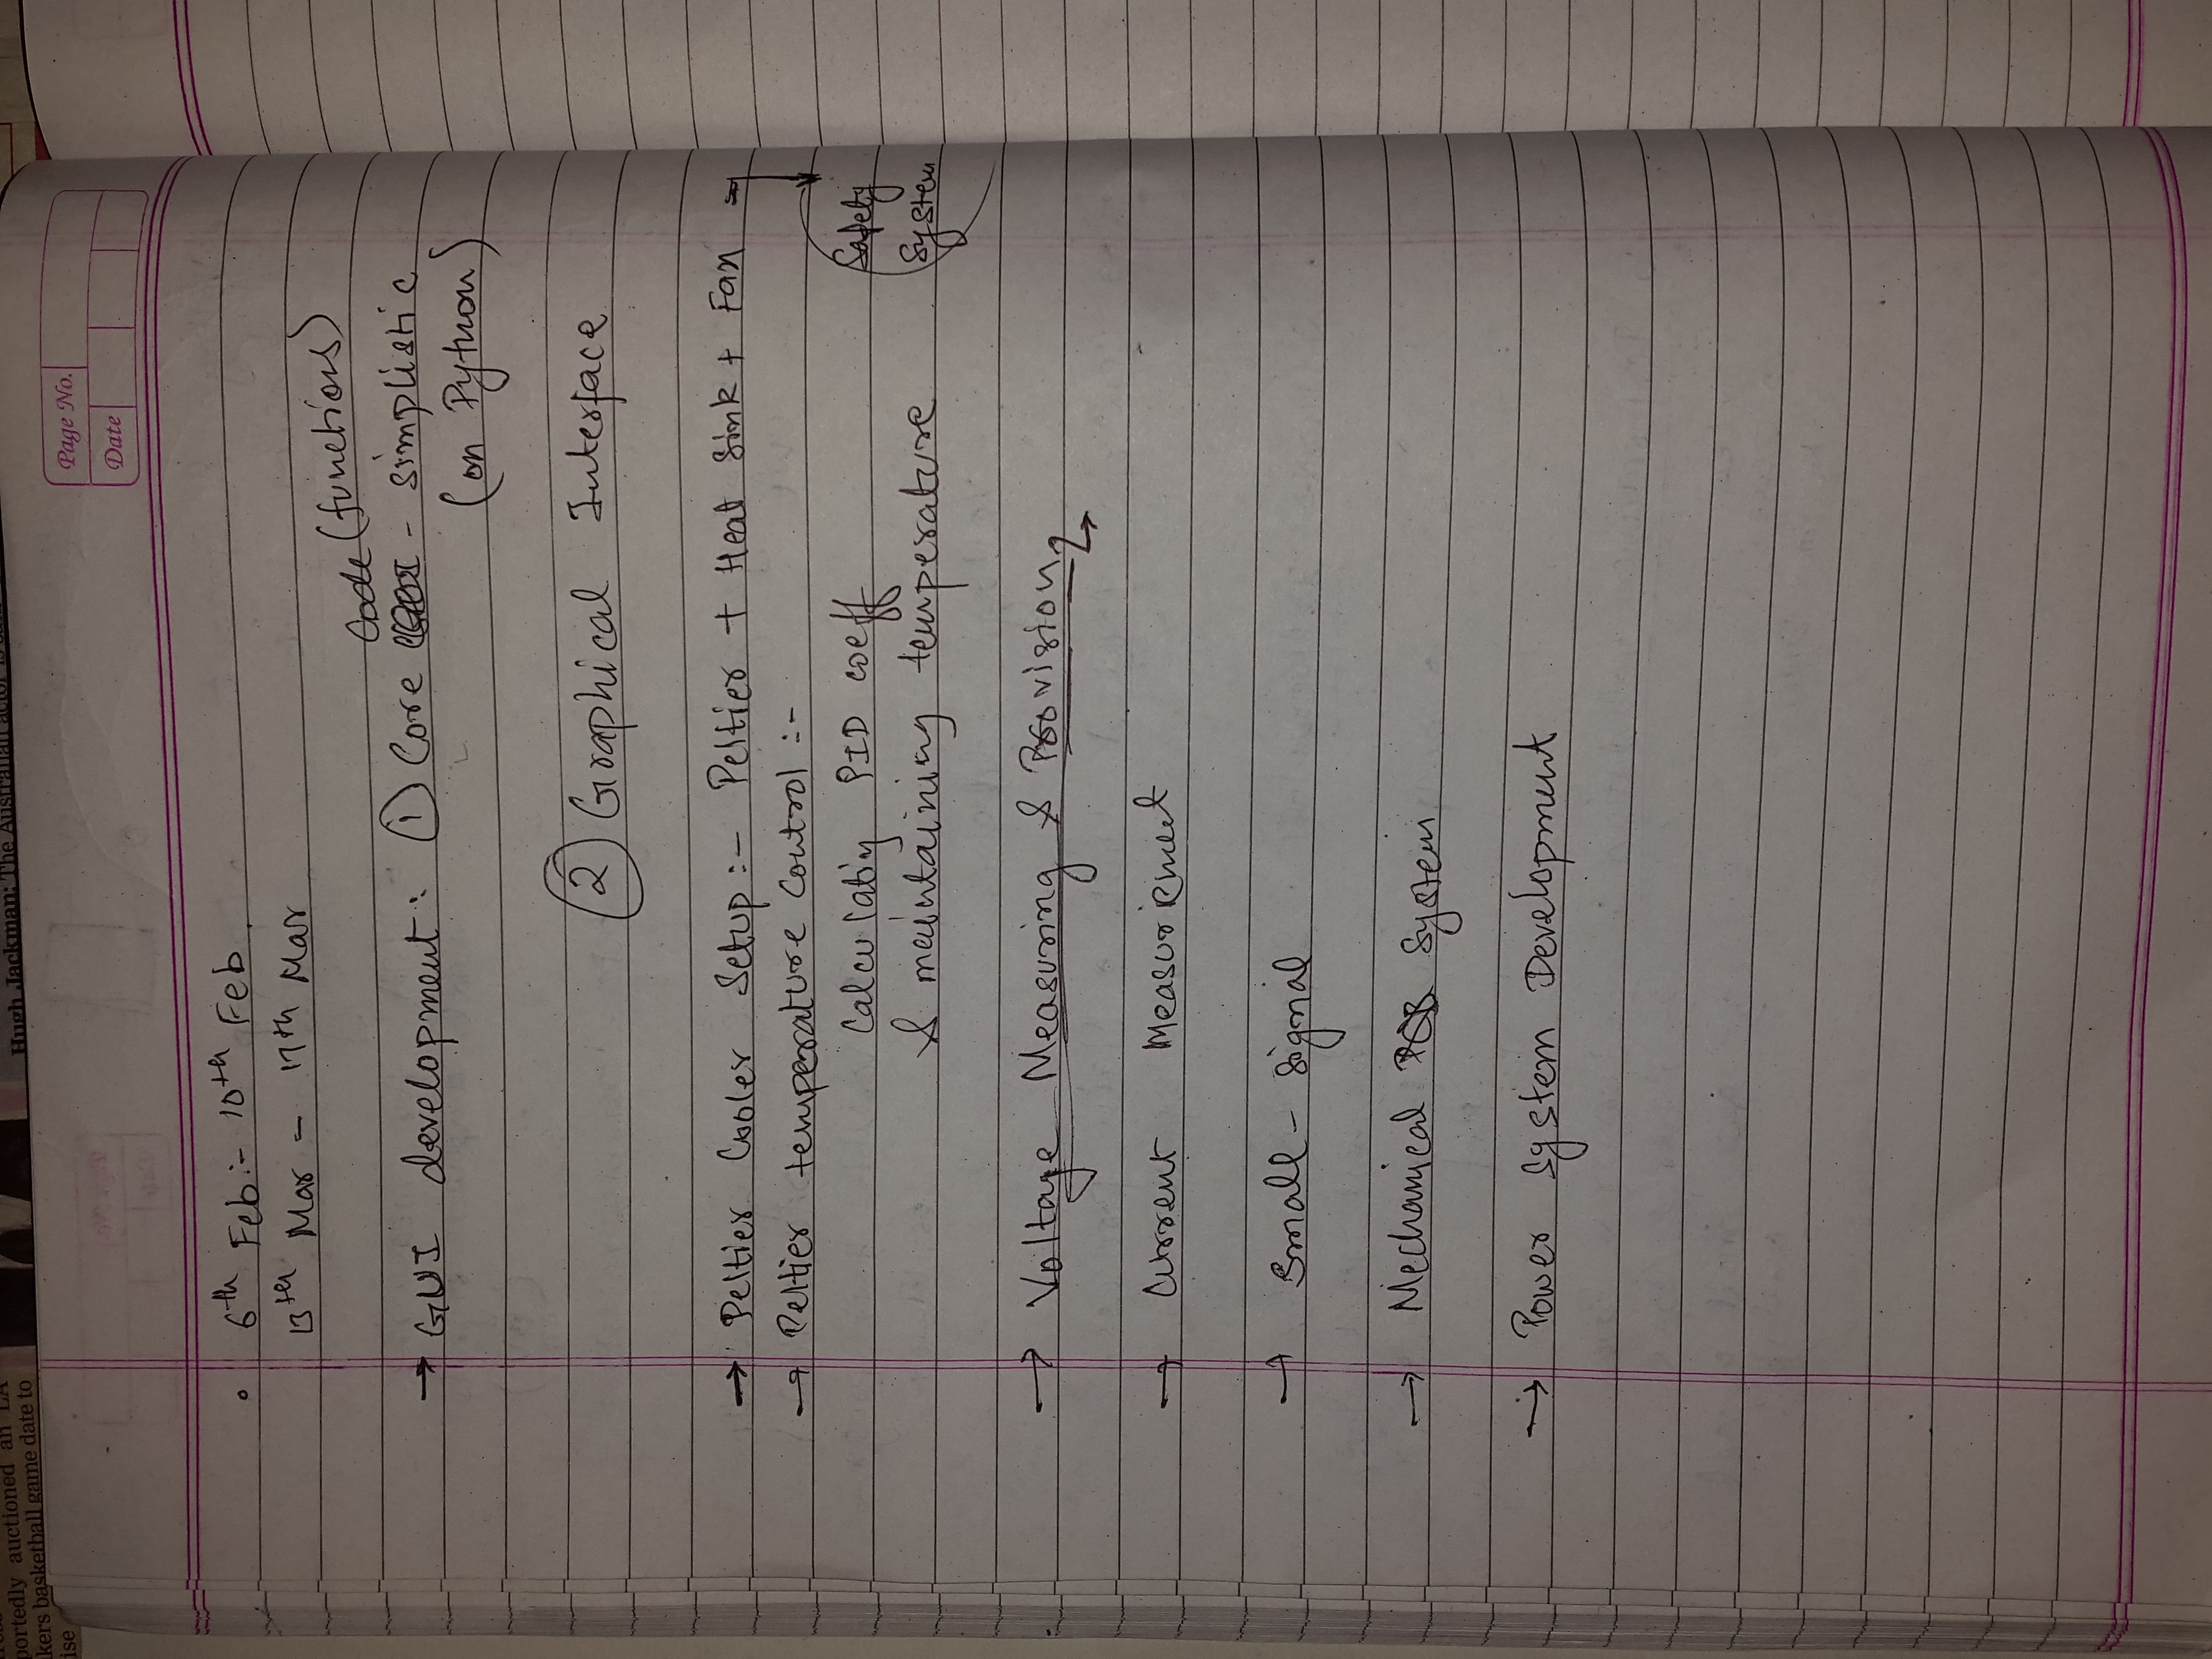 portedly auctioned an LA
kers basketball game date to
ise
Hugh Jackman: The Australian actor is
Page No.
Date
6th Feb:- 10th Feb.
13th Mar - 17th Mar
Code (functions)
→ GUI development: ① Core - simplistic
(on Python)
② Graphical Interface
→ Peltier Cooler Setup:- Peltier + Heat Sink + Fan
→ Peltier temperature Control:-
Calculating PID coeff
Safety
& maintaining temperature
System
→ Voltage Measuring & Provision
→ Current Measurement
→ Small-Signal
→ Mechanical PCB System
→ Power System Development